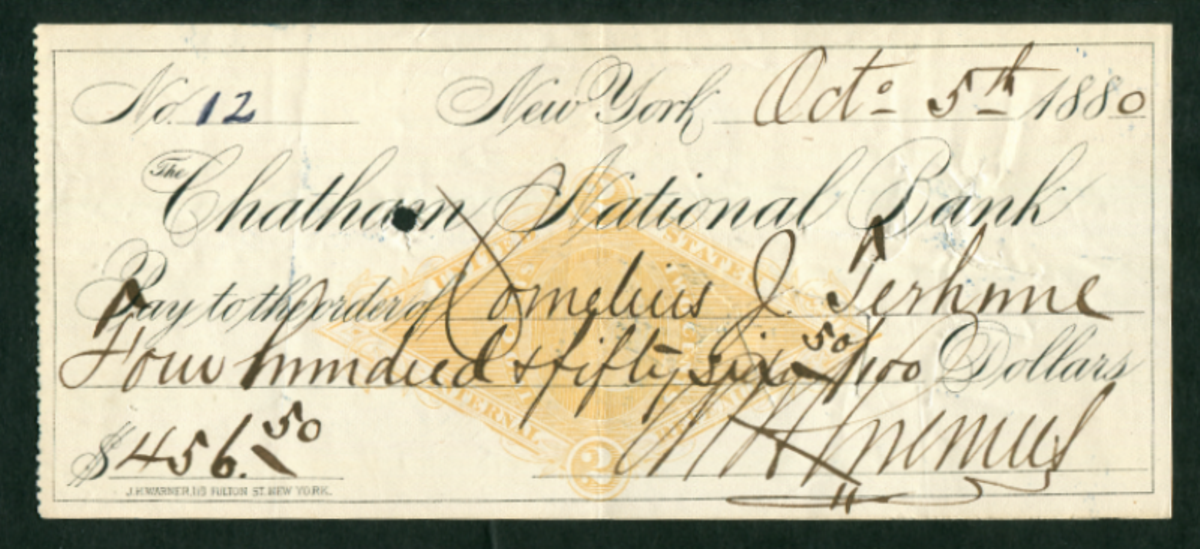 No. 12 New York Octo 5th 1880
The Chatham National Bank
Pay to the order of Cornelius J. Terhune
Four hundred & fifty six 50/100 Dollars
$456.50
J.H. WARNER, 113 FULTON ST. NEW YORK.
UNITED STATES
INTERNAL REVENUE
2